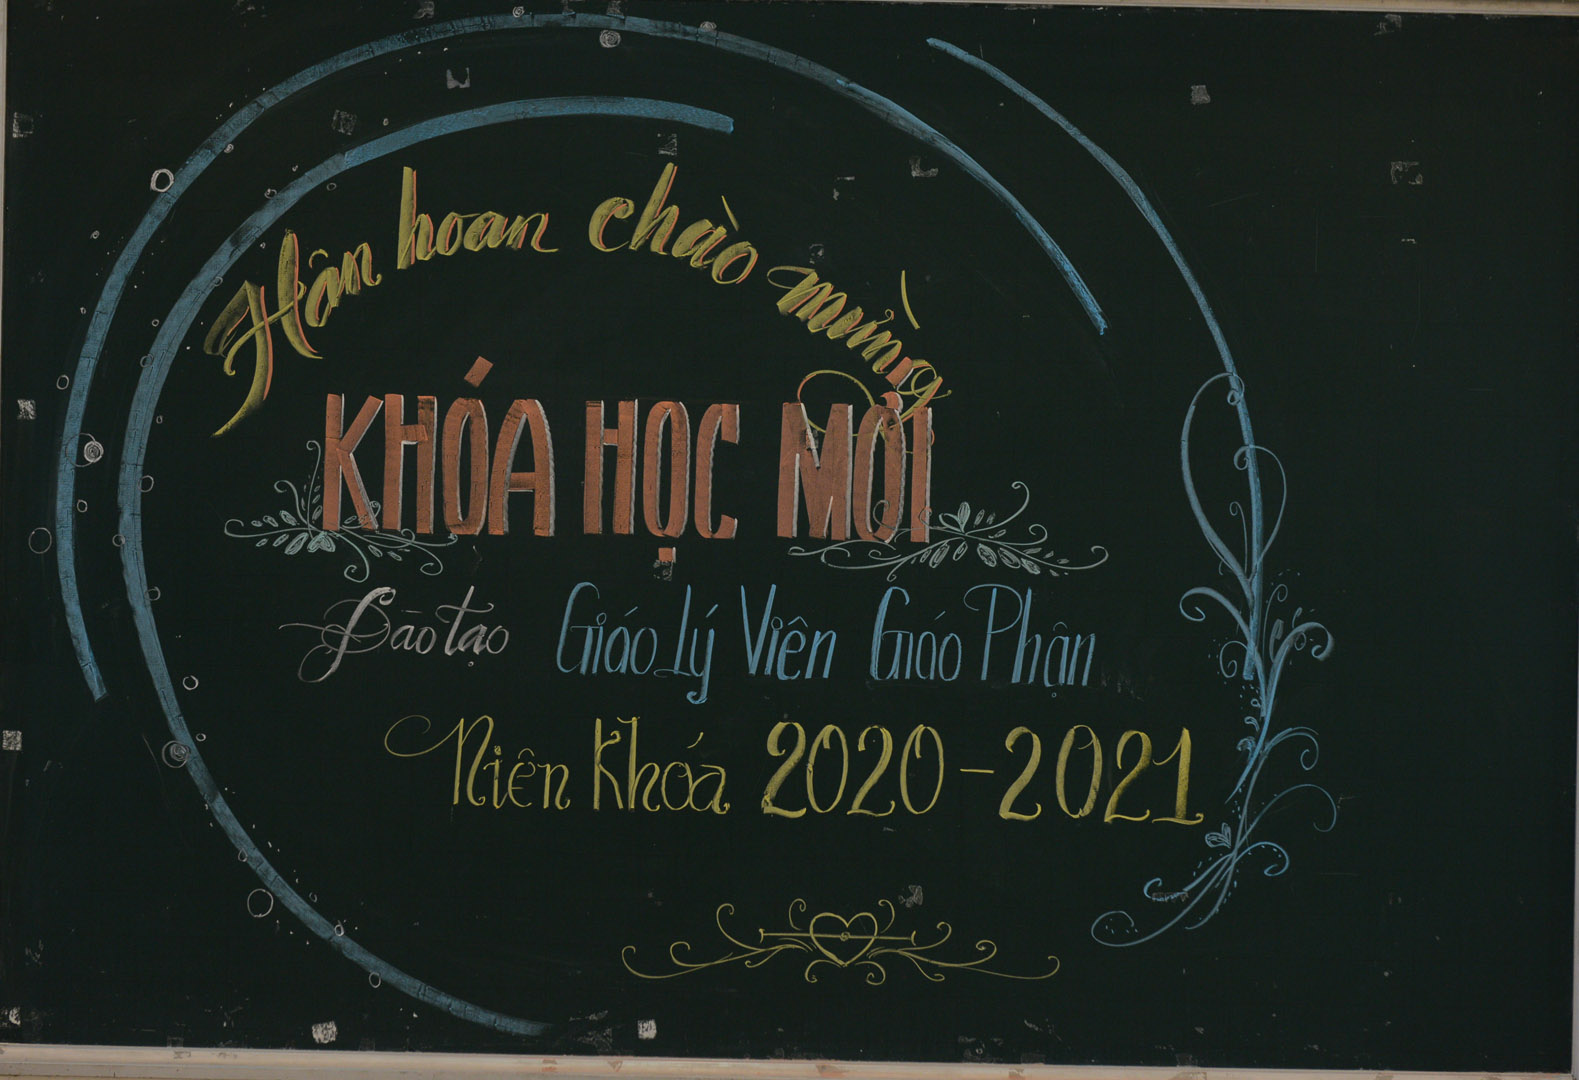 Hân hoan chào mừng
KHÓA HỌC MỚI
Đào tạo Giáo Lý Viên Giáo Phận
Niên Khóa 2020-2021